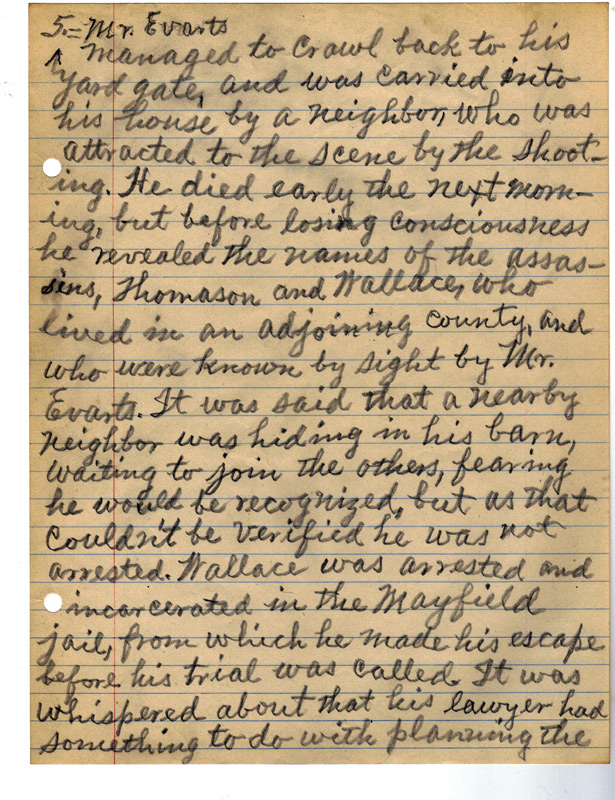 5.= Mr. Evarts
managed to crawl back to his
yard gate, and was carried into
his house by a neighbor, who was
attracted to the scene by the shoot-
ing. He died early the next morn-
ing, but before losing consciousness
he revealed the names of the assas-
sins, Thomason and Wallace, who
lived in an adjoining county, and
who were known by sight by Mr.
Evarts. It was said that a nearby
neighbor was hiding in his barn,
waiting to join the others, fearing
he would be recognized, but as that
couldn't be verified he was not
arrested. Wallace was arrested and
incarcerated in the Mayfield
jail, from which he made his escape
before his trial was called. It was
whispered about that his lawyer had
something to do with planning the